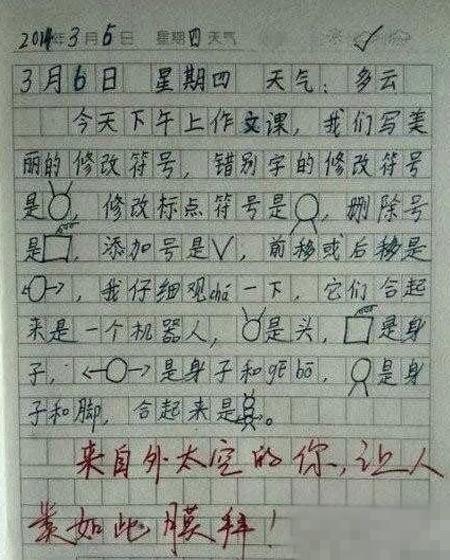 2014年3月6日 星期四天气
3月6日 星期四 天气：多云
今天下午上作文课，我们写美
丽的修改符号，错别字的修改符号
是，修改标点符号是，删除号
是，添加号是√，前移或后移是
，我仔细观chá一下，它们合起
来是一个机器人，是头，是身
子，是身子和gē bō，是身
子和脚，合起来是。
来自外太空的你，让人
类如此膜拜！